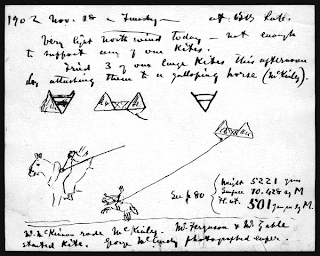 1902 Nov. 18 - Tuesday - at Kite
Very light north wind today - not enough
to support any of our Kites.
Tried 3 of our large Kites this afternoon
by attaching them to a galloping horse (McKinley).
See p 80
Weight 5221 gms
Surface 10.428 sq M
Fl. wt. 501 gms per sq M.
Mr. McKinnon rode McKinley. Mr. Ferguson &
started Kite. George McCurdy photographed exper.